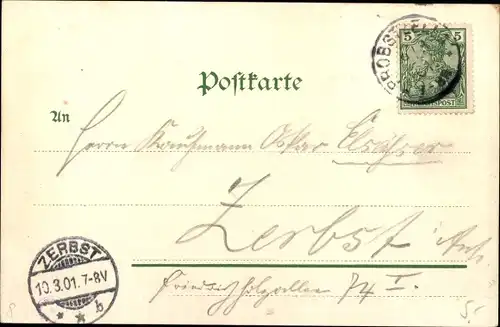 5 5
REICHSPOST
PROBSTZELLA
Postkarte
An
Herrn Kaufmann Oskar
Zerbst i/Anh.
74 I.
ZERBST
10.3.01. 7-8V
* * b
5.-